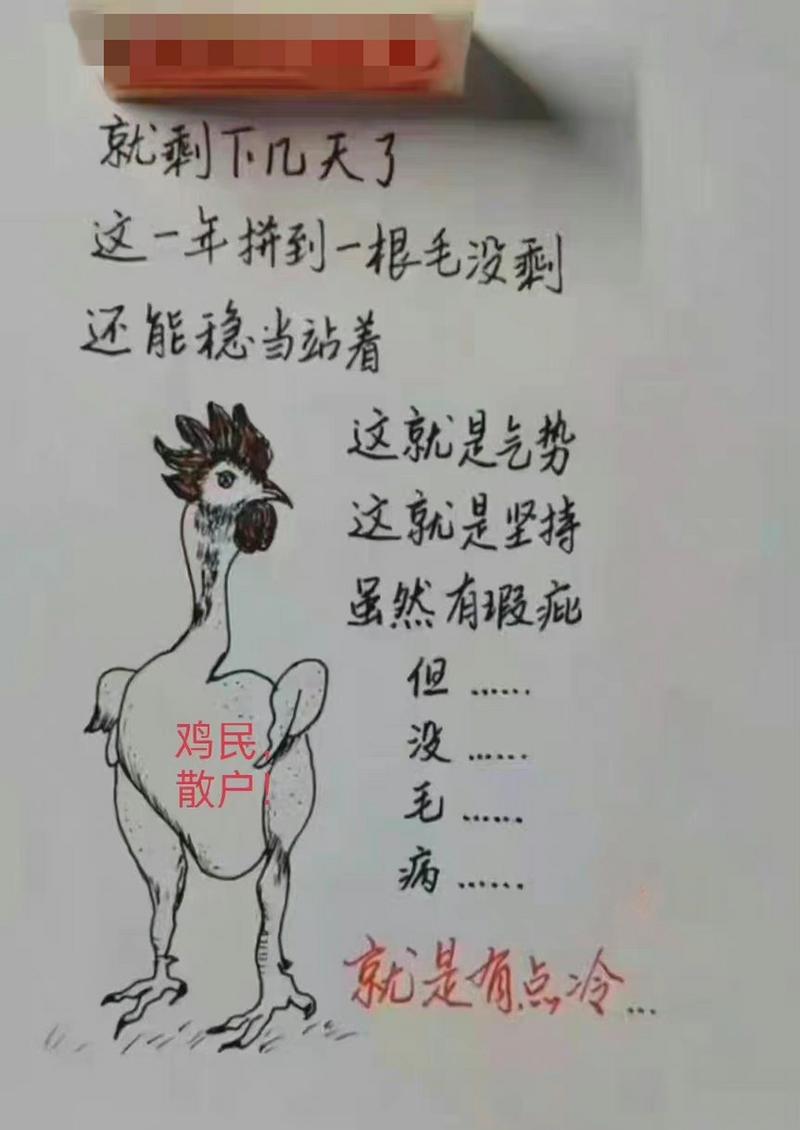 就剩下几天了
这一年拼到一根毛没剩
还能稳当站着
这就是气势
这就是坚持
虽然有瑕疵
但……
没……
毛……
病……
鸡民，
散户！
就是有点冷…